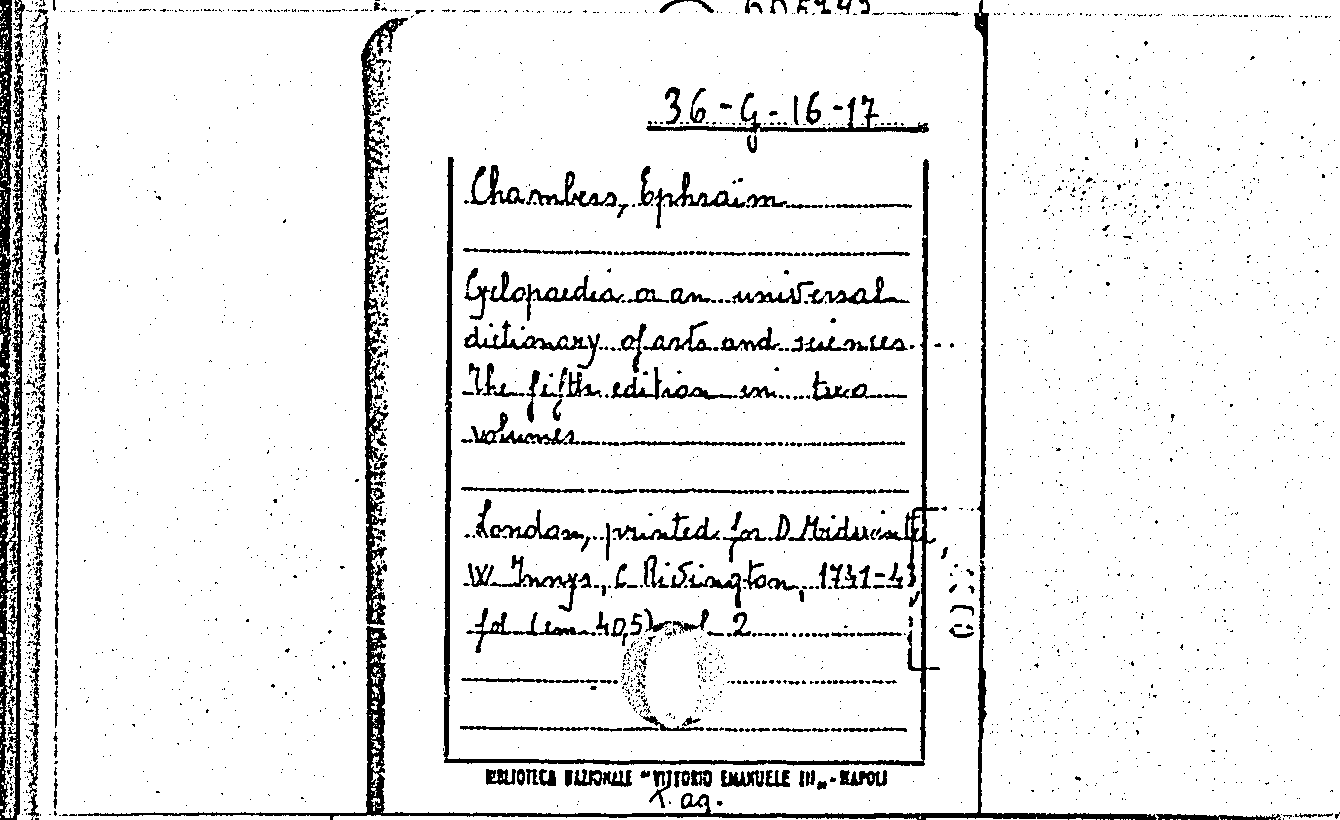 36-G-16-17
Chambers, Ephraim
Cyclopaedia or an universal
dictionary of arts and sciences...
The fifth edition in two
volumes
London, printed for D. Midwinter,
W. Innys, C. Rivington, 1741-43
fol (cm 40,5) vol 2
BIBLIOTECA NAZIONALE "VITTORIO EMANUELE III„ - NAPOLI